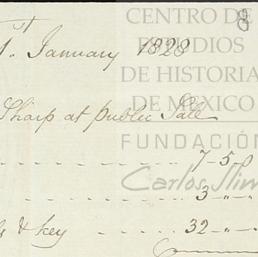 8
CENTRO DE
ESTUDIOS
DE HISTORIA
DE MEXICO
FUNDACIÓN
Carlos Slim
January 1828
Sharp at public Sale
7 - 5 0
3 - " - "
& key 32 - " -